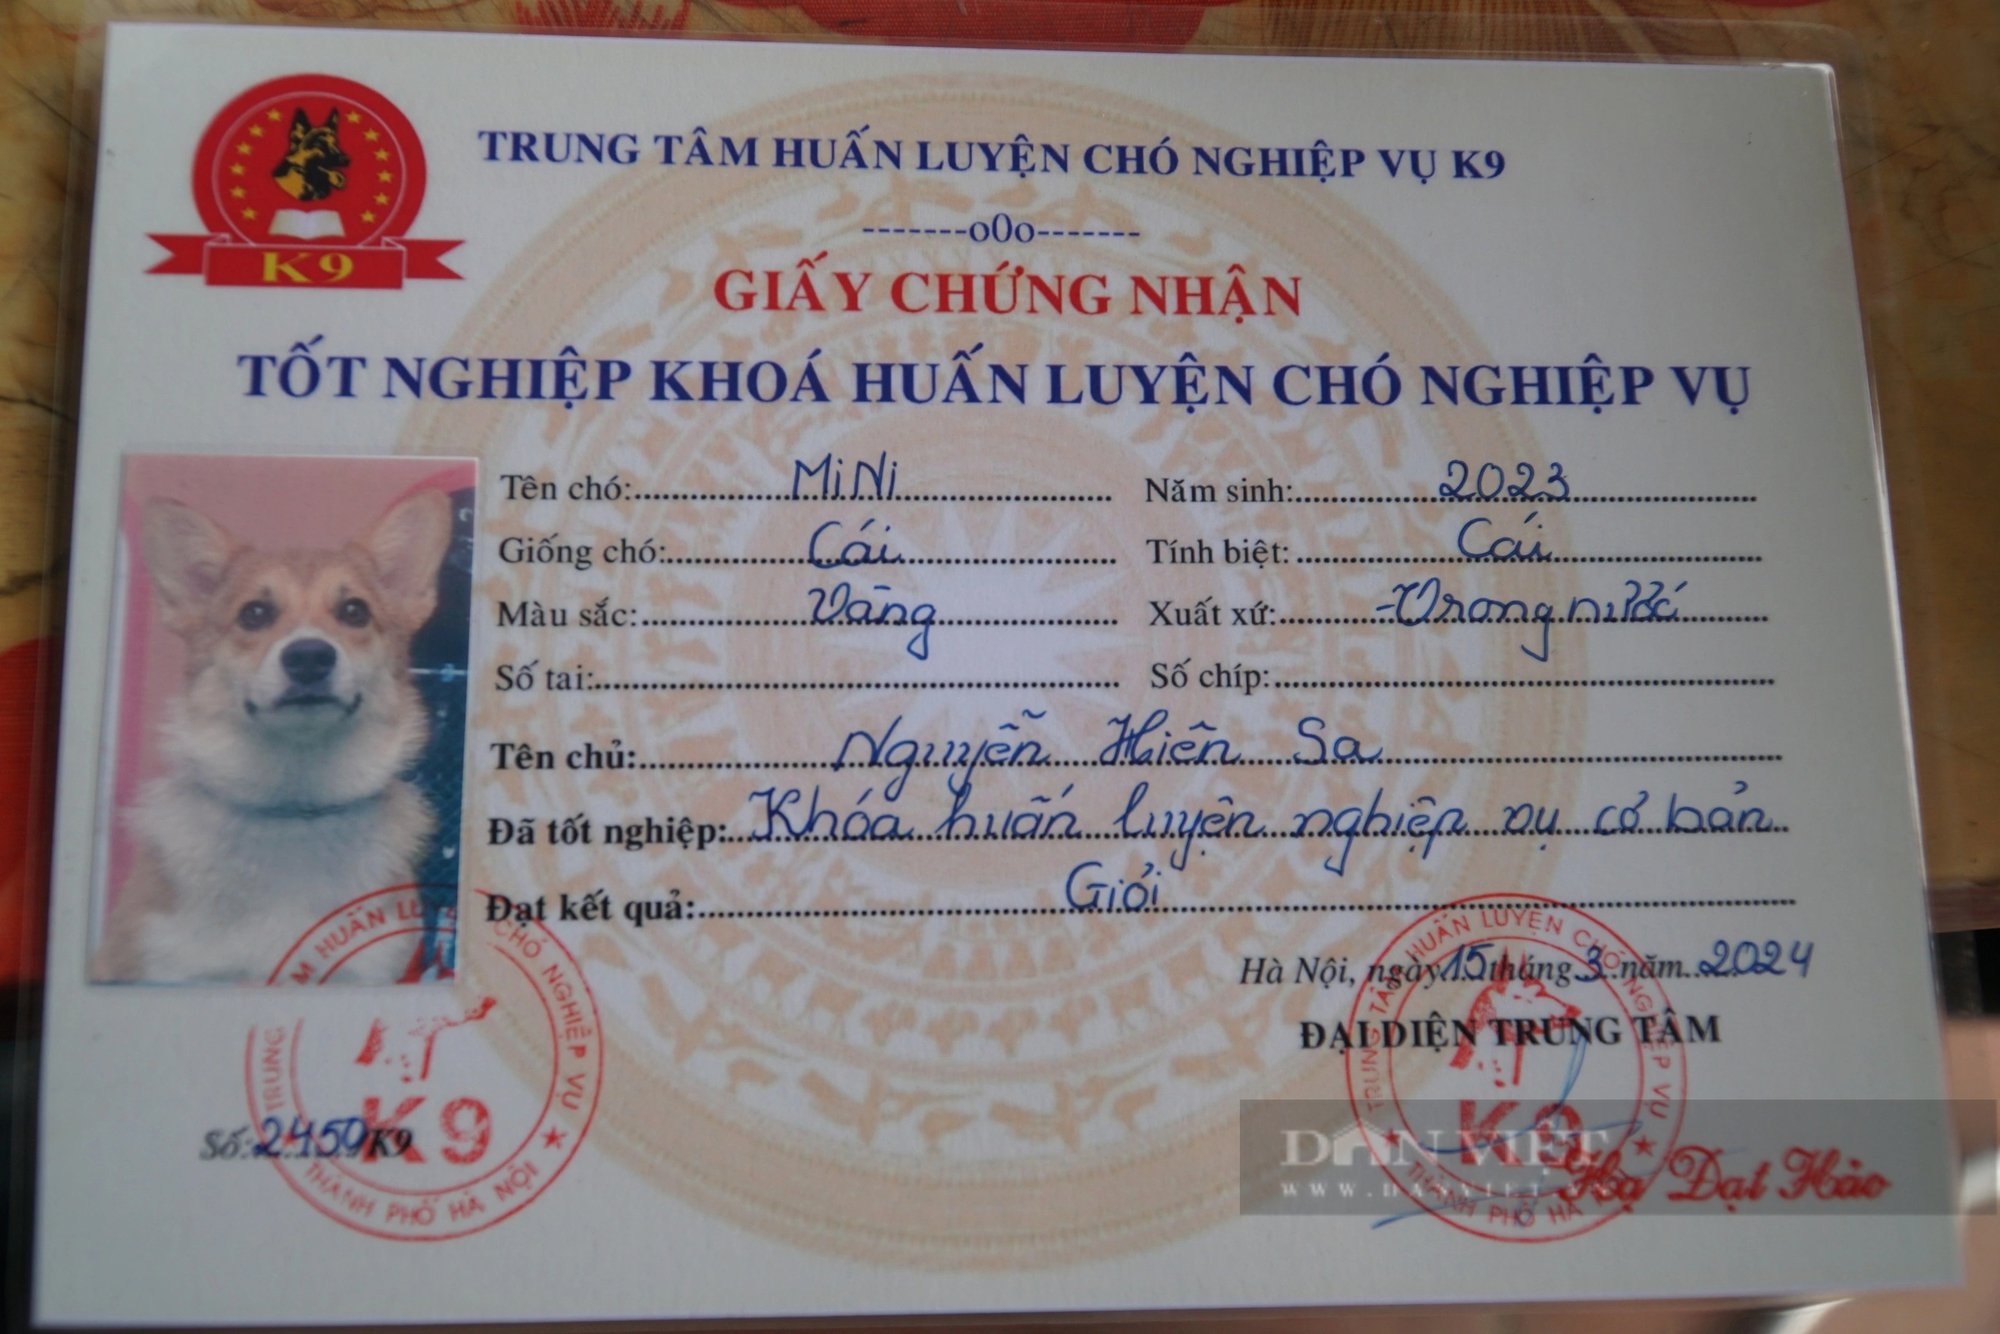 TRUNG TÂM HUẤN LUYỆN CHÓ NGHIỆP VỤ K9
-------o0o-------
K9
GIẤY CHỨNG NHẬN
TỐT NGHIỆP KHOÁ HUẤN LUYỆN CHÓ NGHIỆP VỤ
Tên chó: MiNi Năm sinh: 2023
Giống chó: Cái Tính biệt: Cái
Màu sắc: Vàng Xuất xứ: Trong nước
Số tai: Số chíp:
Tên chủ: Nguyễn Hiên Sa
Đã tốt nghiệp: Khóa huấn luyện nghiệp vụ cơ bản
Đạt kết quả: Giỏi
Hà Nội, ngày 15 tháng 3 năm 2024
ĐẠI DIỆN TRUNG TÂM
TRUNG TÂM HUẤN LUYỆN CHÓ NGHIỆP VỤ
K9
THÀNH PHỐ HÀ NỘI
Số: 2459/K9
TRUNG TÂM HUẤN LUYỆN CHÓ NGHIỆP VỤ
K9
THÀNH PHỐ HÀ
DÂN VIỆT
Hạ Đạt Hảo